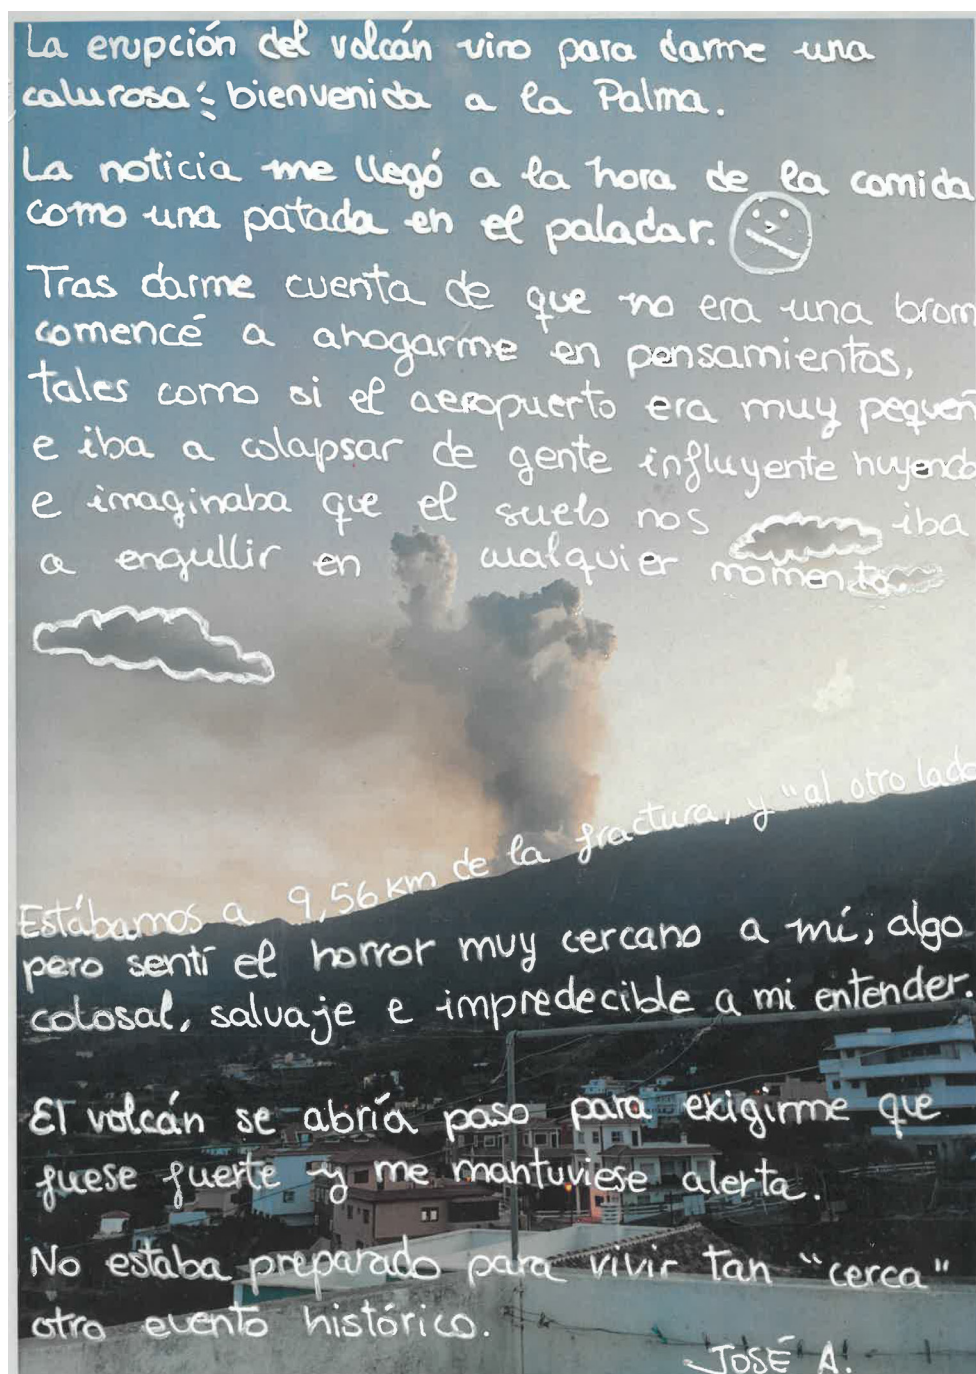 La erupción del volcán vino para darme una
calurosa bienvenida a la Palma.
La noticia me llegó a la hora de la comida
como una patada en el paladar.
Tras darme cuenta de que no era una brom
comencé a ahogarme en pensamientos,
tales como si el aeropuerto era muy pequeñ
e iba a colapsar de gente influyente huyendo
e imaginaba que el suelo nos iba
a engullir en cualquier momento.
Estábamos a 9,56 km de la fractura, y "al otro lado
pero sentí el horror muy cercano a mí; algo
colosal, salvaje e impredecible a mi entender.
El volcán se abría paso para exigirme que
fuese fuerte y me mantuviese alerta.
No estaba preparado para vivir tan "cerca"
otro evento histórico.
JOSÉ A.